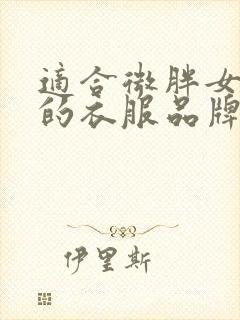 適合微胖女
的衣服品牌
伊里斯